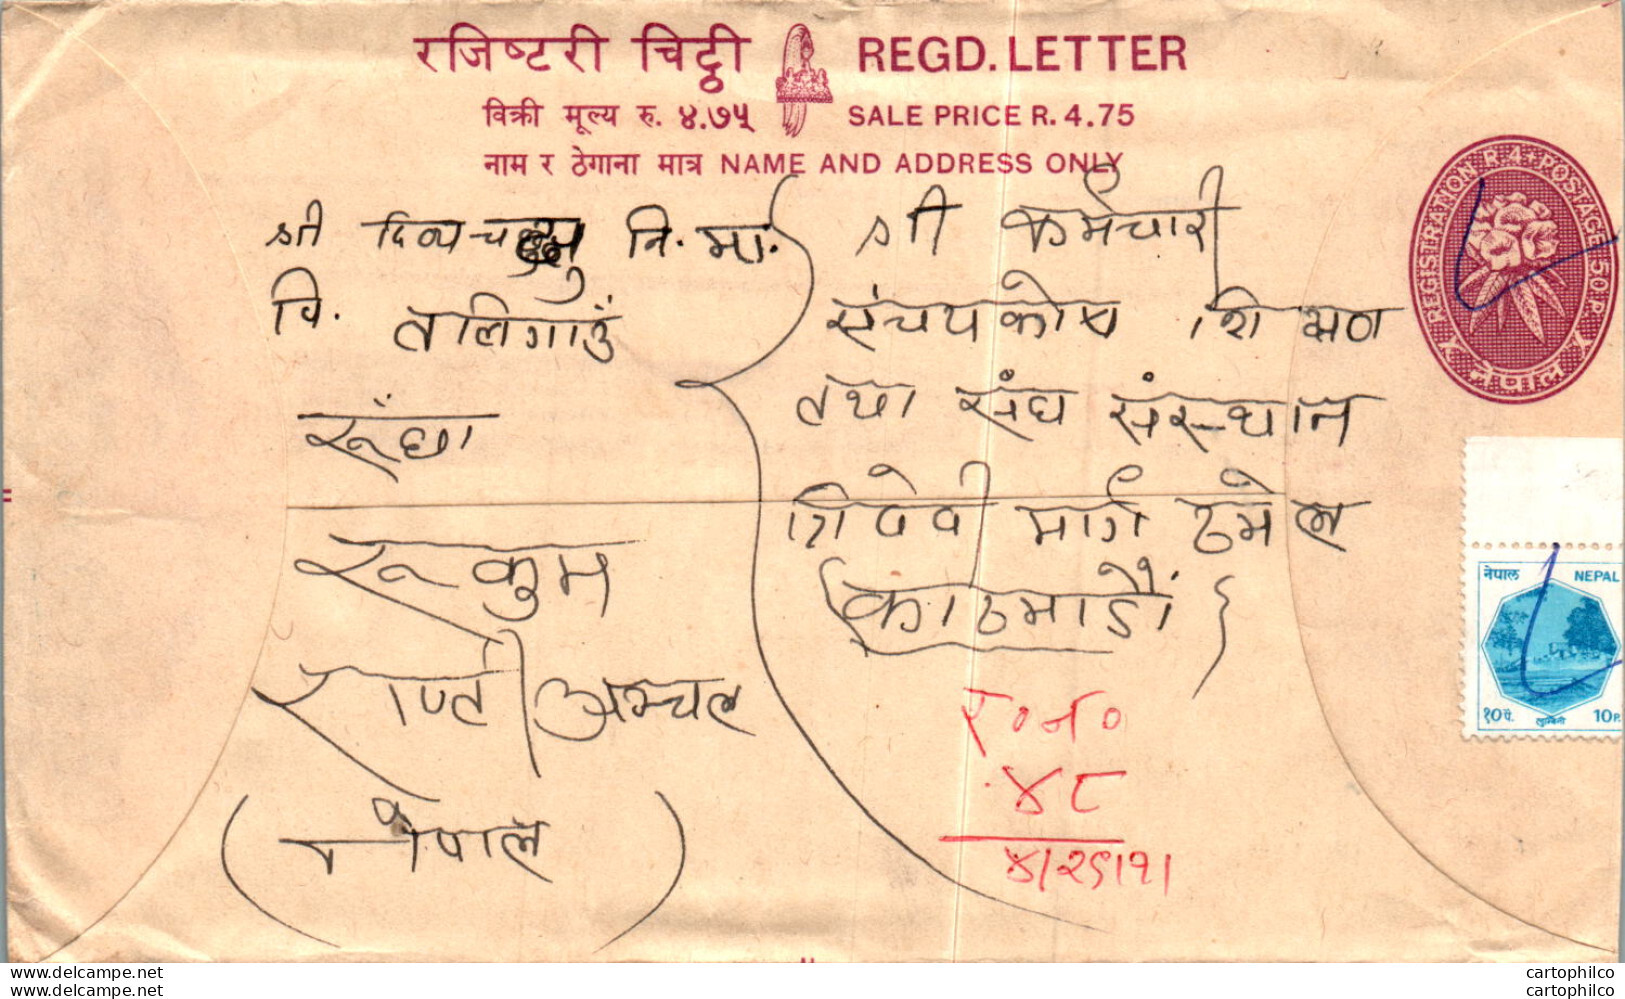 रजिष्टरी चिठ्ठी REGD. LETTER
विक्री मूल्य रु. ४.७५ SALE PRICE R. 4.75
नाम र ठेगाना मात्र NAME AND ADDRESS ONLY
REGISTRATION R 4; POSTAGE 50 P.
नेपाल
श्री नि. मा.
वि. तलिगाउँ
रूँघा
रूकुम
राप्ती अञ्चल
(नेपाल)
श्री कर्मचारी
संचयकोष शिक्षण
तथा संघ संस्थान
त्रिदेवी मार्ग ठमेल
{काठमाडौं}
र०न०
४८
४।२९।१।
नेपाल NEPAL
१० पै. लुम्बिनी 10 P.
www.delcampe.net cartophilco
www.delcampe.net cartophilco